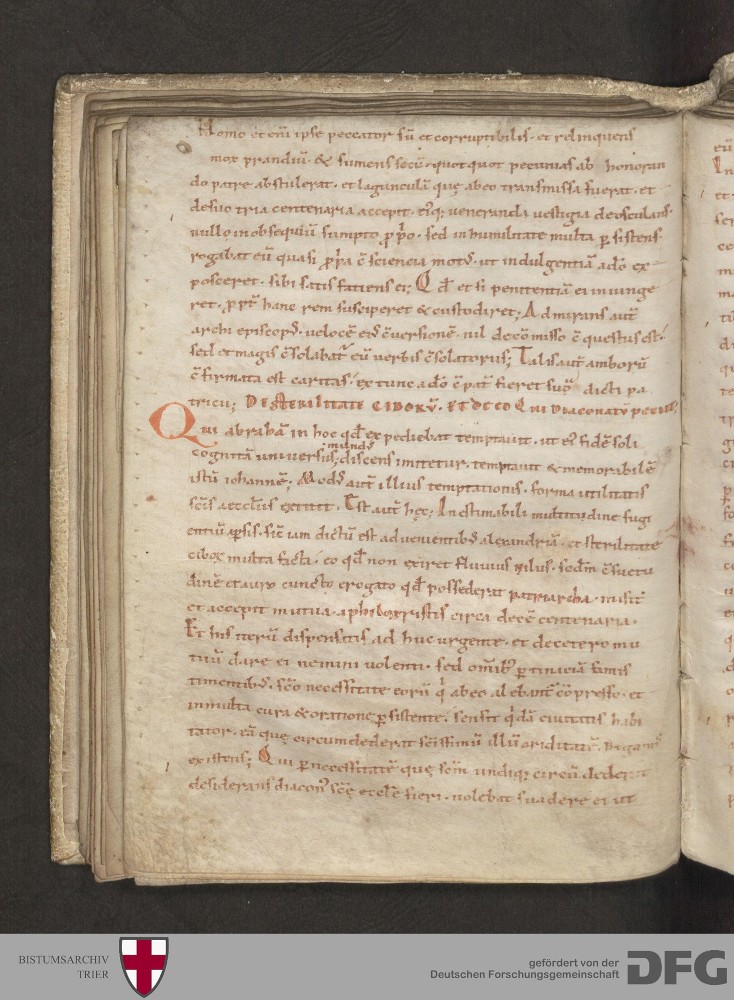 Homo et eni ipse peccator sū et corruptibilis · et relinquens
mox prandiū · & sumens secū · quotquot pecunias ab honoran
do patre abstulerat · et lagunculā quę ab eo transmissa fuerat · et
de suo tria centenaria accepit · ei veneranda uestigia deosculans ·
nullo in obsequiū sumpto p̱prio · sed in humilitate multa p̱sistens ·
rogabat eū quasi p̱pria c̄scienciā mot᷒ · ut indulgentiā a dō ex
posceret · sibi satis faciens ei; Qd̄ et si penitentiā ei iniunge
ret · p̱pt̄ hanc rem susciperet & custodiret; Admirans aut̄
archiepiscop᷒ · velocē ei᷒ c̄uersionē · nil de cōmisso c̄questus est ·
sed et magis c̄solabat᷒ eū uerbis c̄solatoriis; Talis aut̄ amborū
c̄firmata est caritas · ex tunc a dō c̄pat᷒ fieret sup̱ dicti pa
tricii; DE STERILITATE CIBORŪ · ET DE EO QUI DIACONATŪ PETIIT;
Qui abrahā in hoc qd̄ expediebat temptauit · ut ei᷒ fidē soli
cognitā uniuersus mund᷒ discens imitetur · temptauit & memorabilē
istū iohannē; Mod᷒ aut̄ illius temptationis · forma utilitatis
scīs aecclīis extitit · Est aut̄ hęc; Inestimabili multitudine fugi
entiū p̱sis · sic̄ iam dictū est aduenientib᷒ alexandriā · et sterilitate
cibox multa facta · eo qd̄ non exiret fluuius nilus · scdm̄ c̄suetu
dinē et auro cuncto erogato qd̄ possederat patriarcha · misit
et accepit mutua · a philoxristis circa decē centenaria ·
Et his iterū dispensatis ad huc urgente · et de cetero mu
tuū dare ei nemini uolenti · sed om̄ib᷒ p̱tinaciā famis
timentib᷒ · scō necessitate eorū q̄ ab eo alebant᷒ cōpresso · et
in multa cura & oratione p̱sistente · sensit q̄dā ciuitatis habi
tator · eā quę circumdederat scīssimū illū ariditatē · bigam᷒
existens; Qui p̱ necessitatē quę scm̄ undiq; circū dederat
desiderans diacon᷒ scę ecclē fieri · uolebat suadere ei ut
BISTUMSARCHIV
TRIER
gefördert von der
Deutschen Forschungsgemeinschaft
DFG